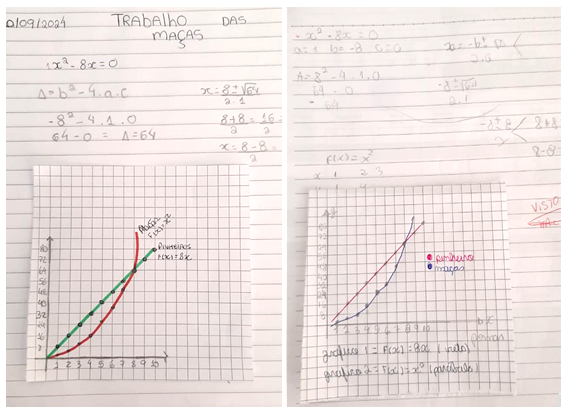 0/09/2024 TRABALHO DAS
MAÇAS
1x² - 8x = 0
Δ = b² - 4.a.c
-8² - 4.1.0
64 - 0 = Δ = 64
x = 8 ± √64
2.1
8+8 = 16 =
2 2
x = 8 - 8 =
2
MAÇÃS
F(x) = x²
PINHEIROS
F(x) = 8x
80
72
64
48
40
32
24
16
1 2 3 4 5 6 7 8 9 10
x² - 8x = 0
a = 1 b = -8 c = 0
Δ = 8² - 4.1.0
64 - 0
64
-8 ± √64
2.1
-8 ± 8
2
8+8
8-8=
F(x) = x²
x 1 2 3
VISTO
pinheiro
maçãs
1 2 3 4 5 6 7 8 9 10
gráfico 1 = F(x) = 8x (reta)
gráfico 2 = F(x) = x² (parábola)